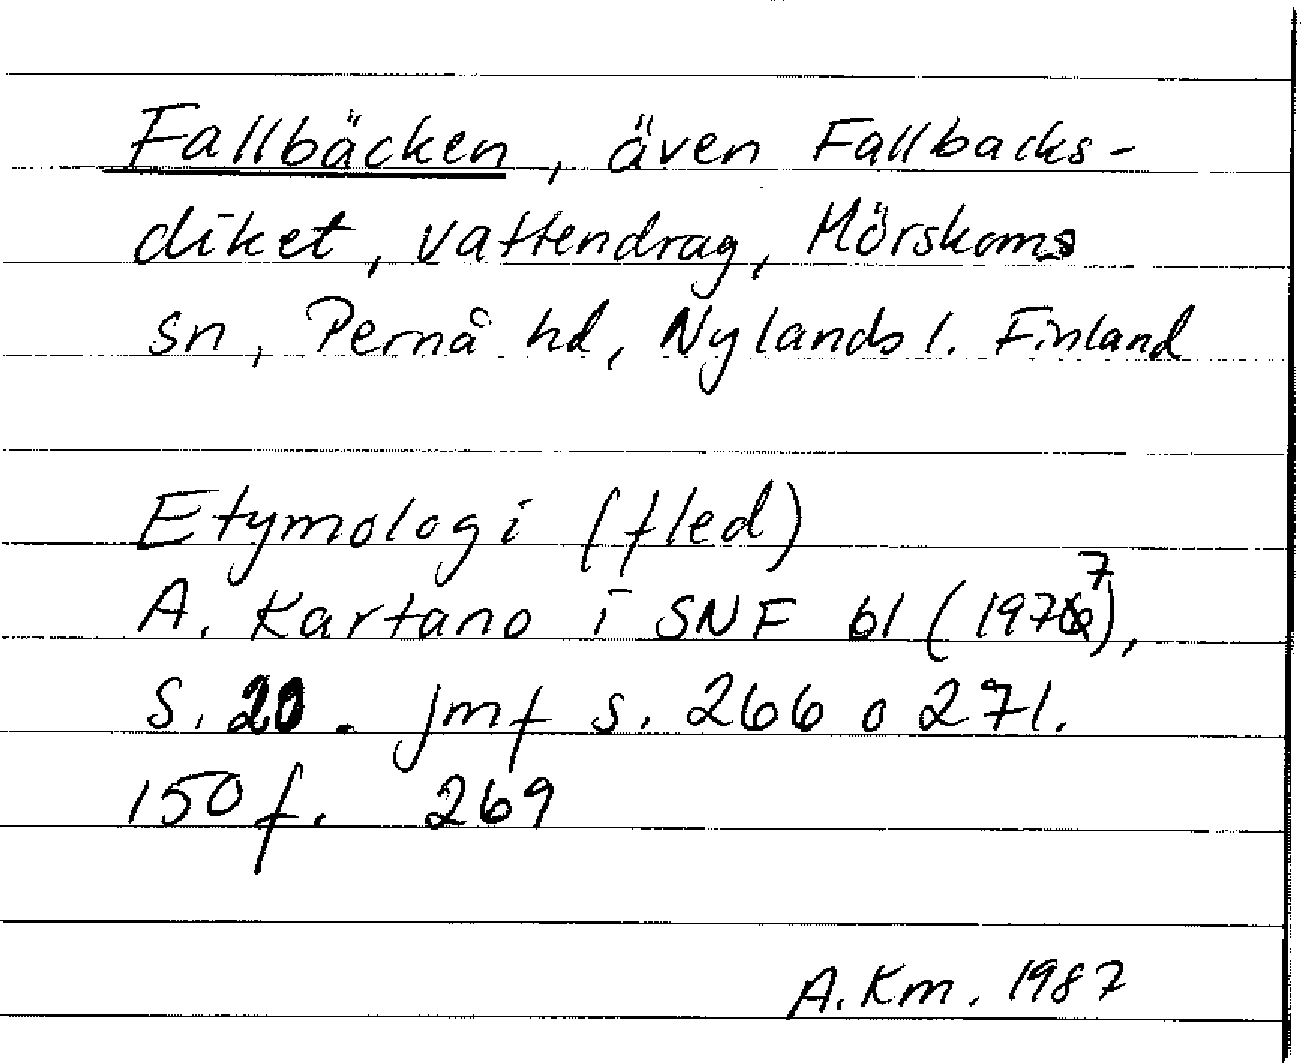 Fallbäcken, även Fallbacks-
diket, vattendrag, Mörskoms
sn, Pernå hd, Nylands l. Finland
Etymologi (fled)
A. Kartano i SNF 61 (1977),
s. 20. jmf s. 266 o 271.
150 f. 269
A.Km. 1987